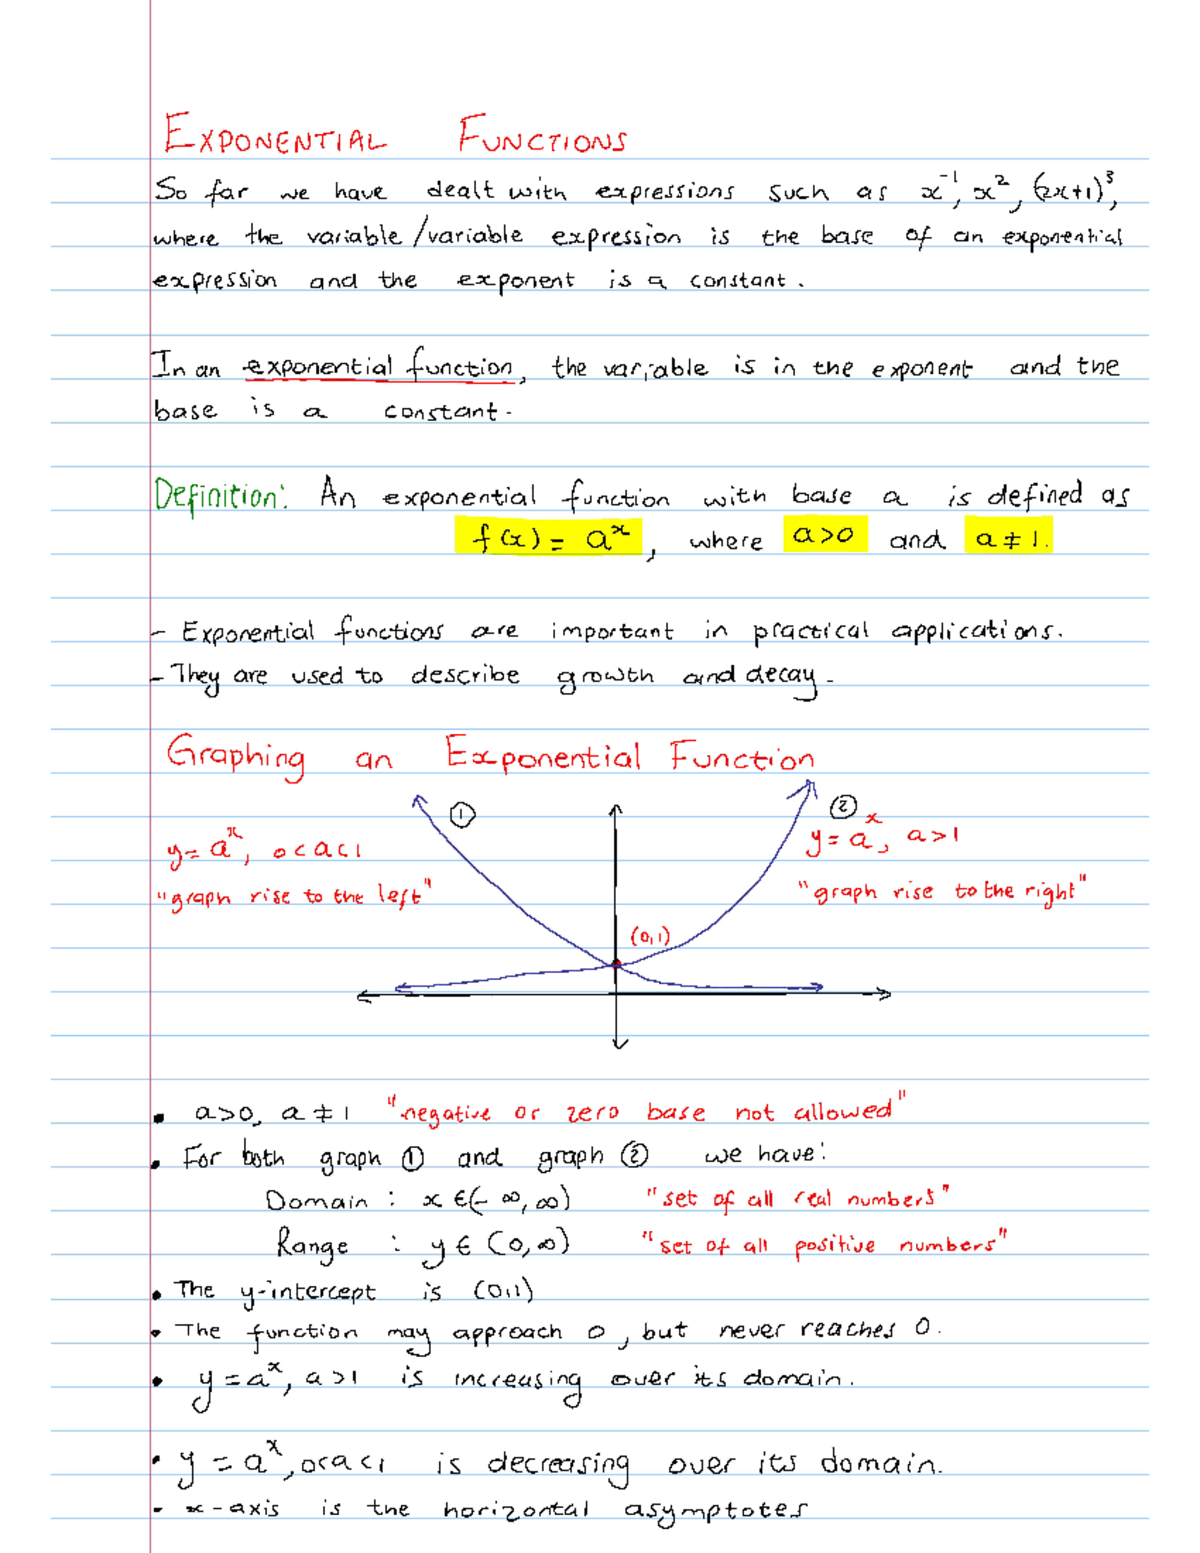 EXPONENTIAL FUNCTIONS
So far we have dealt with expressions such as x⁻¹, x², (2x+1)³,
where the variable/variable expression is the base of an exponential
expression and the exponent is a constant.
In an exponential function, the variable is in the exponent and the
base is a constant.
Definition: An exponential function with base a is defined as
f(x) = aˣ, where a>0 and a≠1.
- Exponential functions are important in practical applications.
- They are used to describe growth and decay.
Graphing an Exponential Function
① ②
y = aˣ, 0<a<1
y = aˣ, a>1
"graph rise to the left"
"graph rise to the right"
(0,1)
• a>0, a≠1 "negative or zero base not allowed"
• For both graph ① and graph ② we have:
Domain : x ∈(-∞,∞) "set of all real numbers"
Range : y ∈ (0,∞) "set of all positive numbers"
• The y-intercept is (0,1)
• The function may approach 0, but never reaches 0.
• y = aˣ, a>1 is increasing over its domain.
• y = aˣ, 0<a<1 is decreasing over its domain.
• x-axis is the horizontal asymptotes